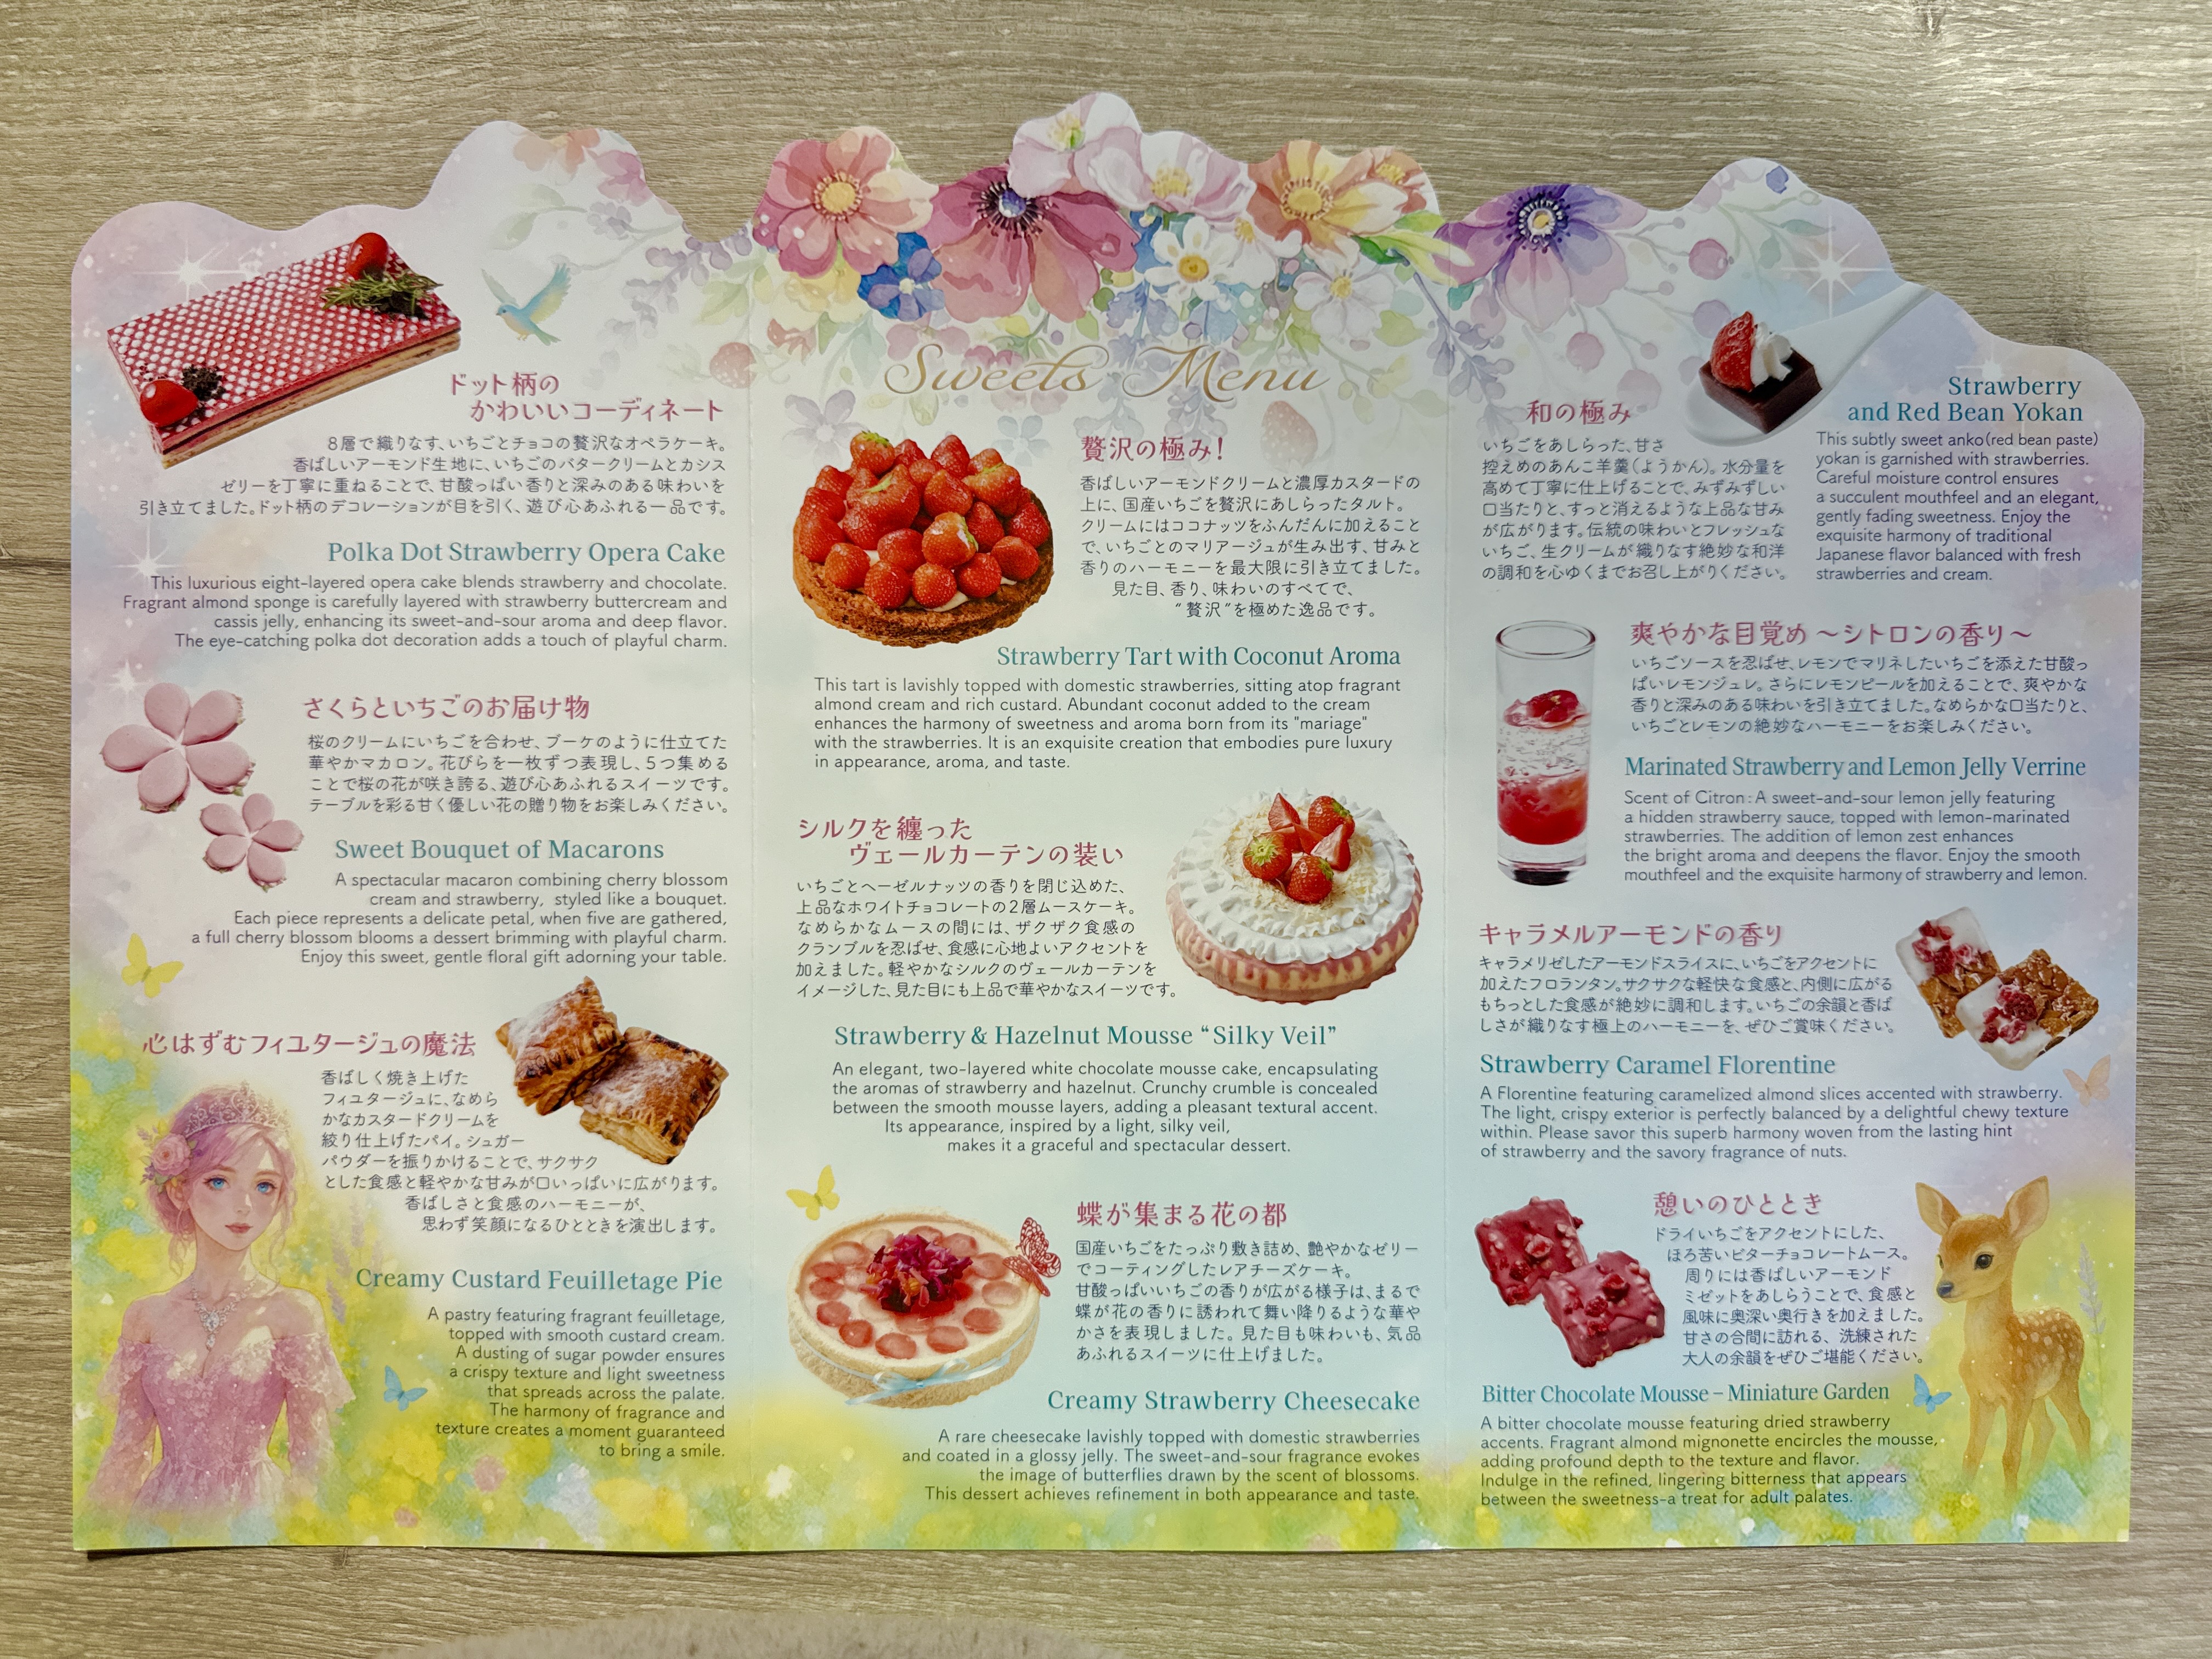 Sweets Menu
ドット柄の
かわいいコーディネート
8層で織りなす、いちごとチョコの贅沢なオペラケーキ。
香ばしいアーモンド生地に、いちごのバタークリームとカシス
ゼリーを丁寧に重ねることで、甘酸っぱい香りと深みのある味わいを
引き立てました。ドット柄のデコレーションが目を引く、遊び心あふれる一品です。
Polka Dot Strawberry Opera Cake
This luxurious eight-layered opera cake blends strawberry and chocolate.
Fragrant almond sponge is carefully layered with strawberry buttercream and
cassis jelly, enhancing its sweet-and-sour aroma and deep flavor.
The eye-catching polka dot decoration adds a touch of playful charm.
さくらといちごのお届け物
桜のクリームにいちごを合わせ、ブーケのように仕立てた
華やかマカロン。花びらを一枚ずつ表現し、5つ集める
ことで桜の花が咲き誇る、遊び心あふれるスイーツです。
テーブルを彩る甘く優しい花の贈り物をお楽しみください。
Sweet Bouquet of Macarons
A spectacular macaron combining cherry blossom
cream and strawberry, styled like a bouquet.
Each piece represents a delicate petal, when five are gathered,
a full cherry blossom blooms a dessert brimming with playful charm.
Enjoy this sweet, gentle floral gift adorning your table.
心はずむフィユタージュの魔法
香ばしく焼き上げた
フィユタージュに、なめら
かなカスタードクリームを
絞り仕上げたパイ。シュガー
パウダーを振りかけることで、サクサク
とした食感と軽やかな甘みが口いっぱいに広がります。
香ばしさと食感のハーモニーが、
思わず笑顔になるひとときを演出します。
Creamy Custard Feuilletage Pie
A pastry featuring fragrant feuilletage,
topped with smooth custard cream.
A dusting of sugar powder ensures
a crispy texture and light sweetness
that spreads across the palate.
The harmony of fragrance and
texture creates a moment guaranteed
to bring a smile.
贅沢の極み!
香ばしいアーモンドクリームと濃厚カスタードの
上に、国産いちごを贅沢にあしらったタルト。
クリームにはココナッツをふんだんに加えること
で、いちごとのマリアージュが生み出す、甘みと
香りのハーモニーを最大限に引き立てました。
見た目、香り、味わいのすべてで、
“贅沢”を極めた逸品です。
Strawberry Tart with Coconut Aroma
This tart is lavishly topped with domestic strawberries, sitting atop fragrant
almond cream and rich custard. Abundant coconut added to the cream
enhances the harmony of sweetness and aroma born from its "mariage"
with the strawberries. It is an exquisite creation that embodies pure luxury
in appearance, aroma, and taste.
シルクを纏った
ヴェールカーテンの装い
いちごとヘーゼルナッツの香りを閉じ込めた、
上品なホワイトチョコレートの2層ムースケーキ。
なめらかなムースの間には、ザクザク食感の
クランブルを忍ばせ、食感に心地よいアクセントを
加えました。軽やかなシルクのヴェールカーテンを
イメージした、見た目にも上品で華やかなスイーツです。
Strawberry & Hazelnut Mousse “Silky Veil”
An elegant, two-layered white chocolate mousse cake, encapsulating
the aromas of strawberry and hazelnut. Crunchy crumble is concealed
between the smooth mousse layers, adding a pleasant textural accent.
Its appearance, inspired by a light, silky veil,
makes it a graceful and spectacular dessert.
蝶が集まる花の都
国産いちごをたっぷり敷き詰め、艶やかなゼリー
でコーティングしたレアチーズケーキ。
甘酸っぱいいちごの香りが広がる様子は、まるで
蝶が花の香りに誘われて舞い降りるような華や
かさを表現しました。見た目も味わいも、気品
あふれるスイーツに仕上げました。
Creamy Strawberry Cheesecake
A rare cheesecake lavishly topped with domestic strawberries
and coated in a glossy jelly. The sweet-and-sour fragrance evokes
the image of butterflies drawn by the scent of blossoms.
This dessert achieves refinement in both appearance and taste.
和の極み
いちごをあしらった、甘さ
控えめのあんこ羊羹(ようかん)。水分量を
高めて丁寧に仕上げることで、みずみずしい
口当たりと、すっと消えるような上品な甘み
が広がります。伝統の味わいとフレッシュな
いちご、生クリームが織りなす絶妙な和洋
の調和を心ゆくまでお召し上がりください。
Strawberry
and Red Bean Yokan
This subtly sweet anko(red bean paste)
yokan is garnished with strawberries.
Careful moisture control ensures
a succulent mouthfeel and an elegant,
gently fading sweetness. Enjoy the
exquisite harmony of traditional
Japanese flavor balanced with fresh
strawberries and cream.
爽やかな目覚め ～シトロンの香り～
いちごソースを忍ばせ、レモンでマリネしたいちごを添えた甘酸っ
ぱいレモンジュレ。さらにレモンピールを加えることで、爽やかな
香りと深みのある味わいを引き立てました。なめらかな口当たりと、
いちごとレモンの絶妙なハーモニーをお楽しみください。
Marinated Strawberry and Lemon Jelly Verrine
Scent of Citron : A sweet-and-sour lemon jelly featuring
a hidden strawberry sauce, topped with lemon-marinated
strawberries. The addition of lemon zest enhances
the bright aroma and deepens the flavor. Enjoy the smooth
mouthfeel and the exquisite harmony of strawberry and lemon.
キャラメルアーモンドの香り
キャラメリゼしたアーモンドスライスに、いちごをアクセントに
加えたフロランタン。サクサクな軽快な食感と、内側に広がる
もちっとした食感が絶妙に調和します。いちごの余韻と香ば
しさが織りなす極上のハーモニーを、ぜひご賞味ください。
Strawberry Caramel Florentine
A Florentine featuring caramelized almond slices accented with strawberry.
The light, crispy exterior is perfectly balanced by a delightful chewy texture
within. Please savor this superb harmony woven from the lasting hint
of strawberry and the savory fragrance of nuts.
憩いのひととき
ドライいちごをアクセントにした、
ほろ苦いビターチョコレートムース。
周りには香ばしいアーモンド
ミゼットをあしらうことで、食感と
風味に奥深い奥行きを加えました。
甘さの合間に訪れる、洗練された
大人の余韻をぜひご堪能ください。
Bitter Chocolate Mousse – Miniature Garden
A bitter chocolate mousse featuring dried strawberry
accents. Fragrant almond mignonette encircles the mousse,
adding profound depth to the texture and flavor.
Indulge in the refined, lingering bitterness that appears
between the sweetness-a treat for adult palates.